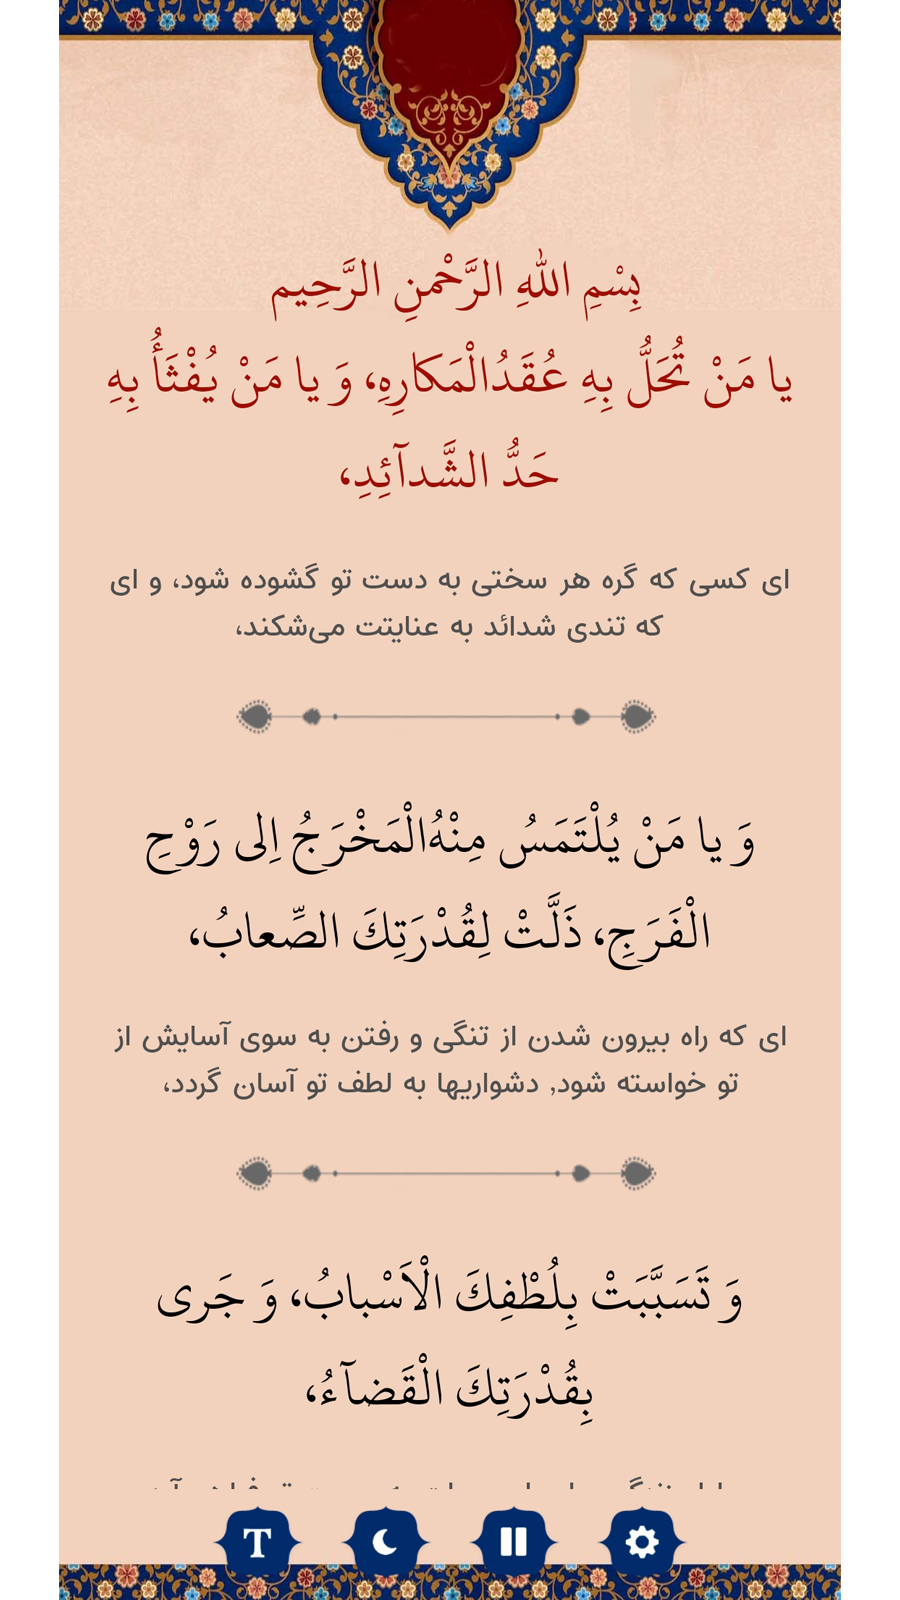 بِسْمِ اللهِ الرَّحْمنِ الرَّحِيم
يا مَنْ تُحَلُّ بِهِ عُقَدُالْمَكارِهِ، وَ يا مَنْ يُفْثَأُ بِهِ
حَدُّ الشَّدآئِدِ،
ای کسی که گره هر سختی به دست تو گشوده شود، و ای
که تندی شدائد به عنایتت می‌شکند،
وَ يا مَنْ يُلْتَمَسُ مِنْهُ‌الْمَخْرَجُ اِلى رَوْحِ
الْفَرَجِ، ذَلَّتْ لِقُدْرَتِكَ الصِّعابُ،
ای که راه بیرون شدن از تنگی و رفتن به سوی آسایش از
تو خواسته شود, دشواریها به لطف تو آسان گردد،
وَ تَسَبَّبَتْ بِلُطْفِكَ الْاَسْبابُ، وَ جَرى
بِقُدْرَتِكَ الْقَضآءُ،
T